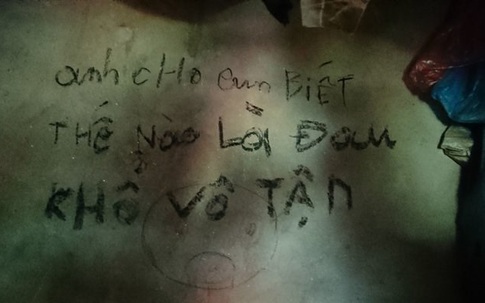 anh cHo em BiẾT
THẾ Nào Là Đau
KHỔ VÔ TẬn